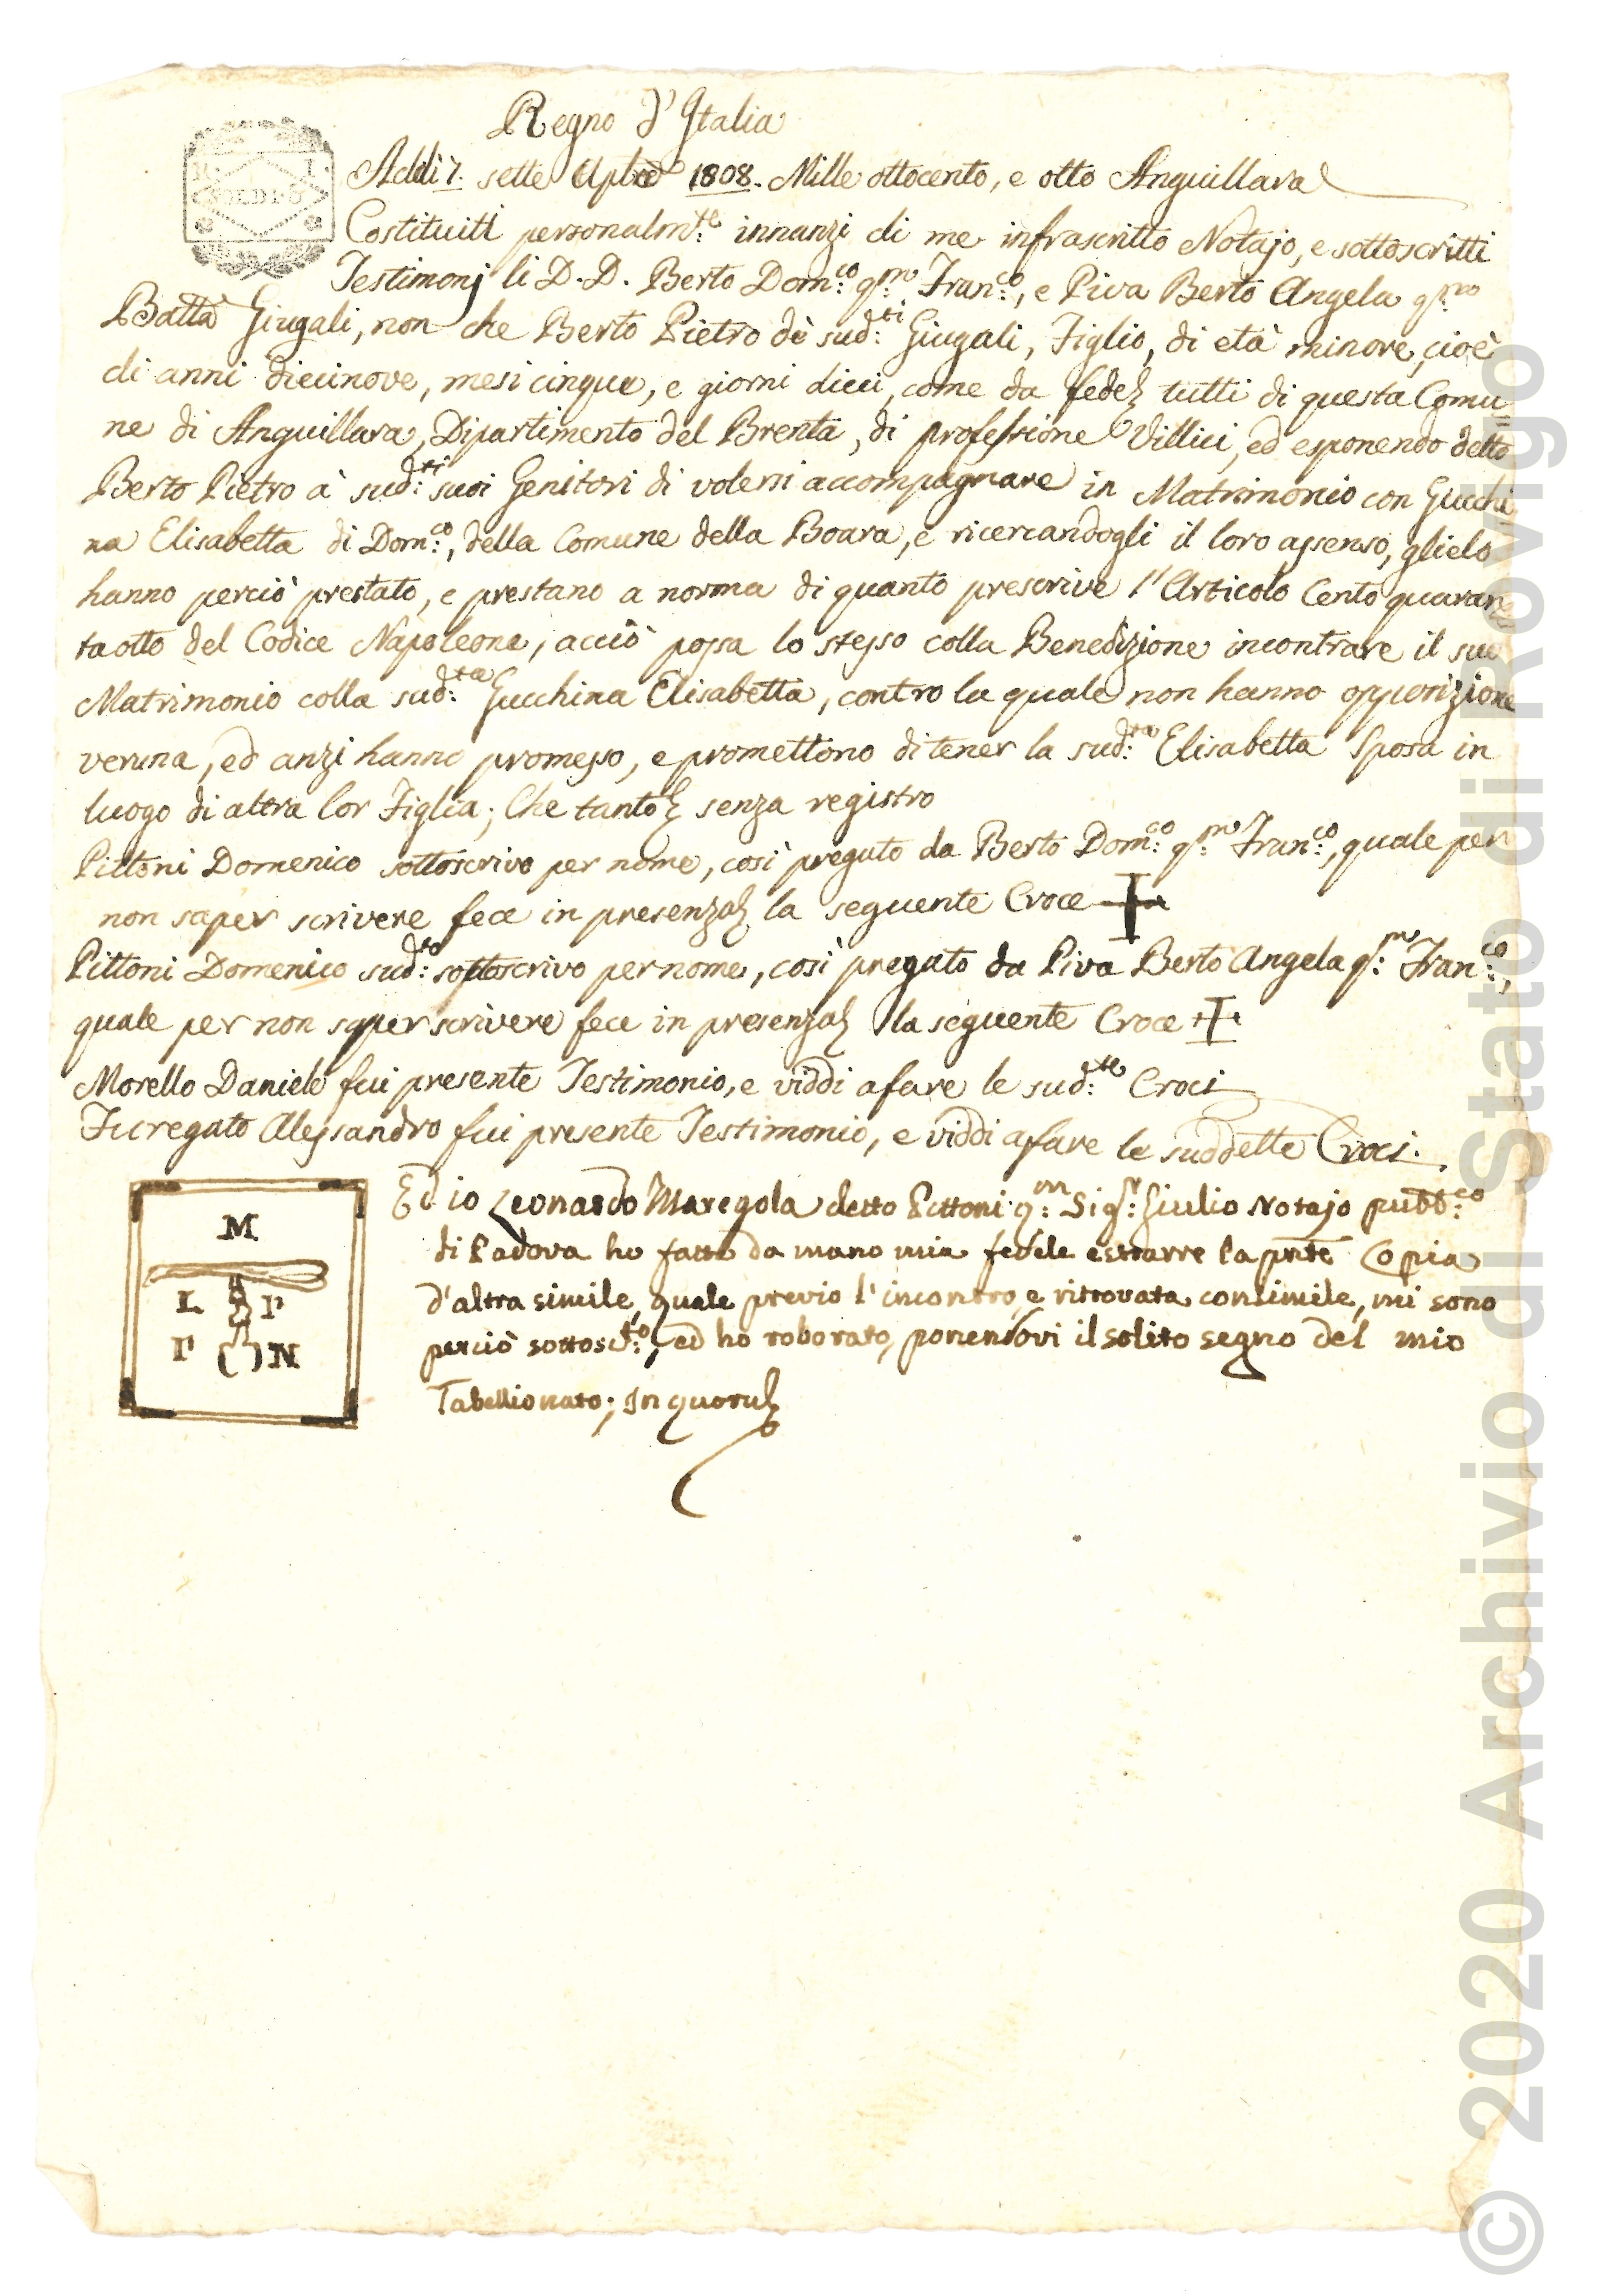 Regno d'Italia
Addi 7. sette Aple 1808. Mille ottocento, e otto Anguillara
Costituiti personalmte: innanzi di me infrascritto Notajo, e sottoscritti
Testimonj li D. D. Berto Domco: qm: Franco:, e Piva Berto Angela qm:
Batta Giugali, non che Berto Pietro dè sudti: Giugali, Figlio, di età minore, cioè
di anni diecinove, mesi cinque, e giorni dieci, come da fede tutti di questa Comu
ne di Anguillara, Dipartimento del Brenta, di professione Villici, ed esponendo detto
Berto Pietro à sudti: suoi Genitori di volersi accompagnare in Matrimonio con Gucchi
na Elisabetta di Domco:, della Comune della Boara, e ricercandogli il loro assenso, glielo
hanno perciò prestato, e prestano a norma di quanto prescrive l'Articolo Cento quaran
ta otto del Codice Napoleone, acciò possa lo stesso colla Benedizione incontrare il suo
Matrimonio colla sudta: Gucchina Elisabetta, contro la quale non hanno opposizione
veruna, ed anzi hanno promesso, e promettono di tener la sudta: Elisabetta Sposa in
luogo di altra lor Figlia; Che tanto senza registro
Pittoni Domenico sottoscrivo per nome, così pregato da Berto Domco: qm: Franco:, quale per
non saper scrivere fece in presenza la seguente Croce +
Pittoni Domenico sudto: sottoscrivo per nome, così pregato da Piva Berto Angela qm: Franco:,
quale per non saper scrivere fece in presenza la seguente Croce +
Morello Daniele fui presente Testimonio, e viddi a fare le sudte: Croci
Furegato Alessandro fui presente Testimonio, e viddi a fare le suddette Croci.
Ed io Leonardo Maregola detto Pittoni qm: Sigr: Giulio Notajo pubbco:
di Padova ho fatto da mano mia fedele estrarre la pnte Copia
d'altra simile, quale previo l'incontro, e ritrovata consimile, mi sono
perciò sottoscto:, ed ho roborato, ponendovi il solito segno del mio
Tabellionato; In quorum
M
L P
P N
© 2020 Archivio di Stato di Rovigo